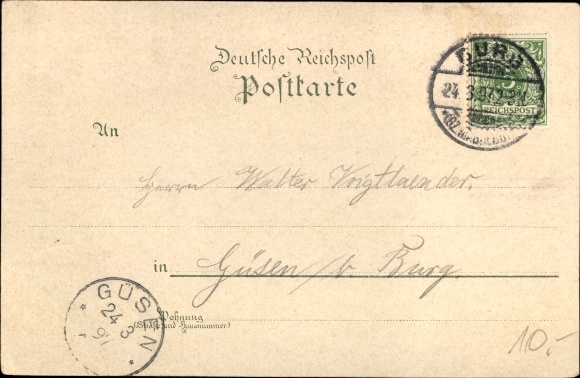 Deutsche Reichspost
Postkarte
BURG
24.3.97
(BZ. MAGDEBURG)
REICHSPOST
An
Herrn Walter Voigtlaender.
in Güsen b/ Burg.
Wohnung
(Straße und Hausnummer)
GÜSEN
24 3
97
10.-